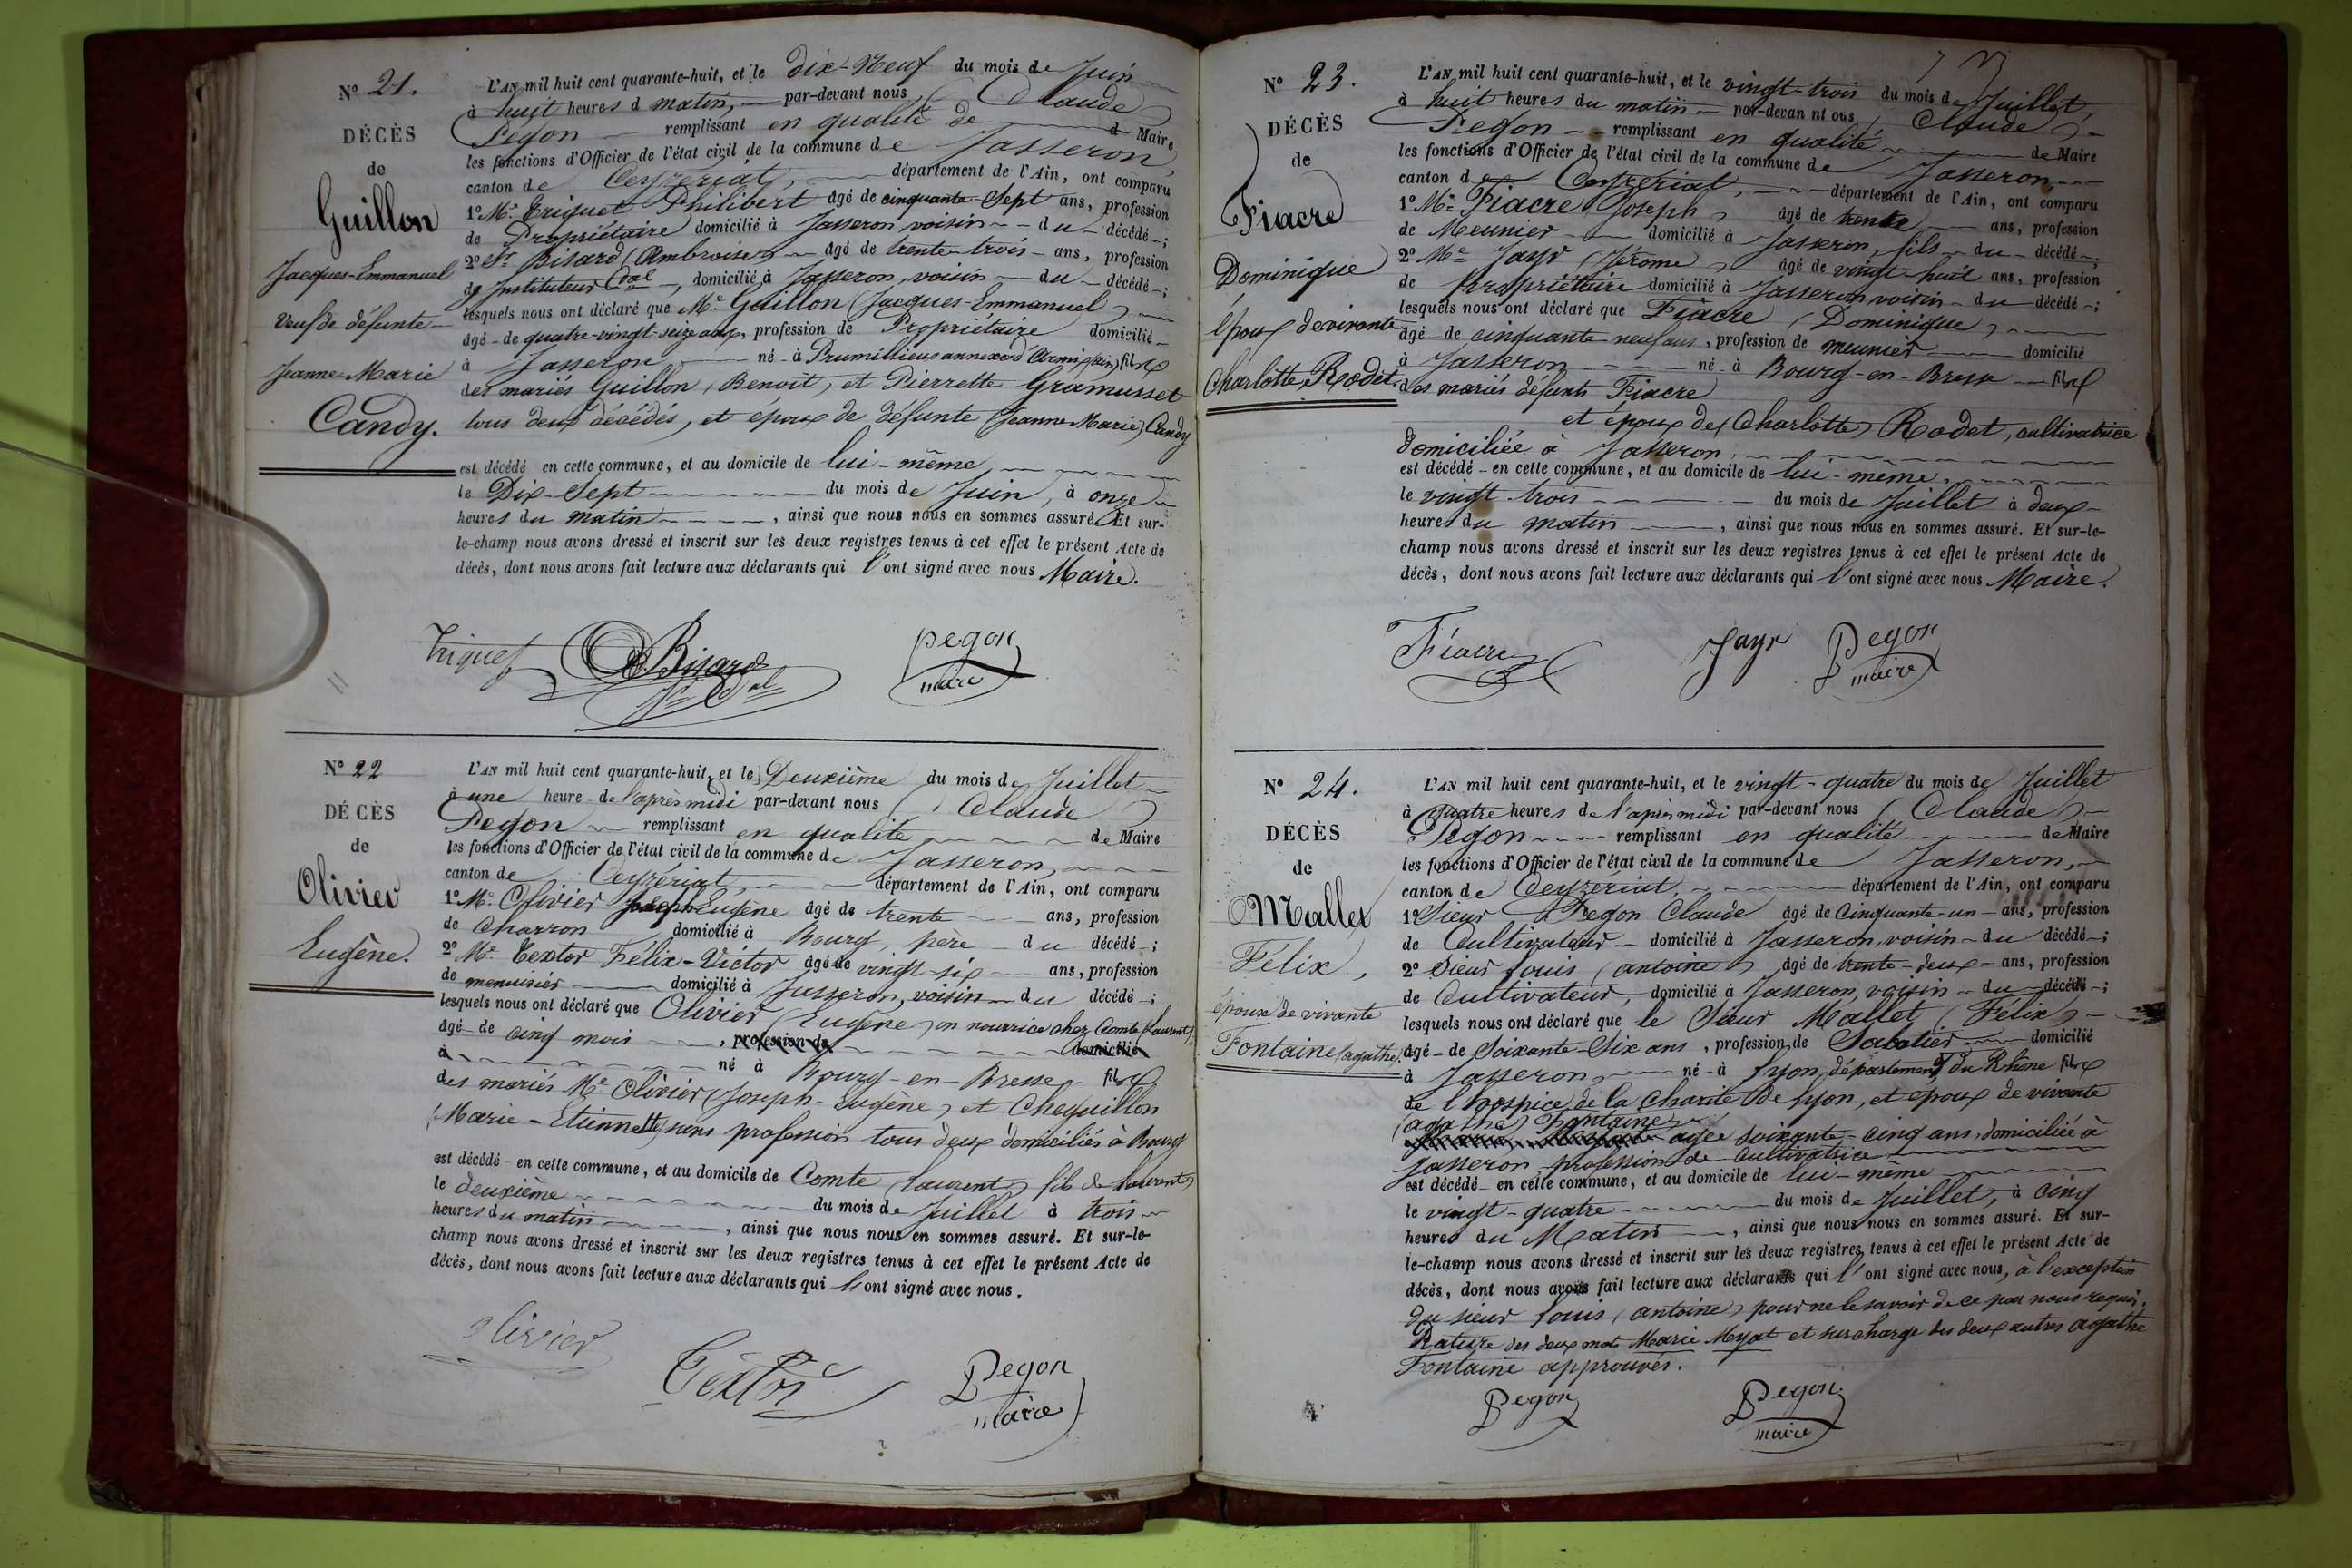 N° 21.
DÉCÈS
de
Guillon
Jacques-Emmanuel
veuf de défunte
Jeanne-Marie
Candy.
L'AN mil huit cent quarante-huit, et le dix-Neuf du mois de Juin
à huit heures d matin, par-devant nous, (Claude)
Pegon remplissant en qualité de d Maire
les fonctions d'Officier de l'état civil de la commune de Jasseron,
canton de Ceyzeriat, département de l'Ain, ont comparu
1° Mr. Triquet Philibert âgé de cinquante-Sept ans, profession
de Propriétaire domicilié à Jasseron voisin du décédé ;
2° Sr Bisard (Ambroise) âgé de trente-trois ans, profession
de Instituteur Cal, domicilié à Jasseron, voisin du décédé ;
lesquels nous ont déclaré que Mr. Guillon (Jacques-Emmanuel)
âgé de quatre-vingt-seize ans, profession de Propriétaire domicilié
à Jasseron né à Prumillieux annexe d' (Ain) fils
des mariés Guillon, Benoit, et Pierrette Gramusset
tous deux décédés, et époux de défunte (Jeanne Marie) Candy
est décédé en cette commune, et au domicile de lui-même
le Dix-Sept du mois de Juin, à onze
heures du matin, ainsi que nous nous en sommes assuré. Et sur-
le-champ nous avons dressé et inscrit sur les deux registres tenus à cet effet le présent Acte de
décès, dont nous avons fait lecture aux déclarants qui l'ont signé avec nous Maire.
Triquet Bisard pegon
maire
N° 22
DÉCÈS
de
Olivier
Eugène.
L'AN mil huit cent quarante-huit, et le Deuxième du mois de Juillet
à une heure de l'après midi par-devant nous (Claude)
Pegon remplissant en qualité de Maire
les fonctions d'Officier de l'état civil de la commune de Jasseron,
canton de Ceyzériat, département de l'Ain, ont comparu
1° Mr. Olivier Joseph-Eugène âgé de trente ans, profession
de Charron domicilié à Bourg, père du décédé ;
2° Mr. Textor Félix-Victor âgé de vingt-six ans, profession
de menuisier domicilié à Jasseron, voisin du décédé ;
lesquels nous ont déclaré que Olivier (Eugène) en nourrice chez Comte (Laurent)
âgé de cinq mois, profession de domicilié
à né à Bourg-en-Bresse fils
des mariés Mr Olivier (Joseph-Eugène) et Chequillon
(Marie-Etiennette) sans profession tous deux domiciliés à Bourg
est décédé en cette commune, et au domicile de Comte (Laurent) fils de Laurent
le deuxième du mois de Juillet à trois
heures du matin, ainsi que nous nous en sommes assuré. Et sur-le-
champ nous avons dressé et inscrit sur les deux registres tenus à cet effet le présent Acte de
décès, dont nous avons fait lecture aux déclarants qui l'ont signé avec nous.
Olivier Textor Pegon
maire
N° 23.
DÉCÈS
de
Fiacre
Dominique
époux de vivante
Charlotte Rodet.
L'AN mil huit cent quarante-huit, et le vingt-trois du mois de Juillet,
à huit heures du matin par-devan nt ous (Claude)
Pegon remplissant en qualité de Maire
les fonctions d'Officier de l'état civil de la commune de Jasseron
canton d Ceyzeriat, département de l'Ain, ont comparu
1° Mr Fiacre Joseph, âgé de trente ans, profession
de Meunier domicilié à Jasseron, fils du décédé ;
2° Mr Jayr (Jérome) âgé de vingt-huit ans, profession
de Propriétaire domicilié à Jasseron voisin du décédé ;
lesquels nous ont déclaré que Fiacre (Dominique)
âgé de cinquante-neuf ans, profession de meunier domicilié
à Jasseron né à Bourg-en-Bresse fils
des mariés défunts Fiacre
et époux de (Charlotte) Rodet, cultivatrice
domiciliée à Jasseron.
est décédé en cette commune, et au domicile de lui-même.
le vingt-trois du mois de Juillet à deux
heures du matin, ainsi que nous nous en sommes assuré. Et sur-le-
champ nous avons dressé et inscrit sur les deux registres tenus à cet effet le présent Acte de
décès, dont nous avons fait lecture aux déclarants qui l'ont signé avec nous Maire.
Fiacre Jayr Pegon
maire
N° 24.
DÉCÈS
de
Mallet
Félix,
époux de vivante
Fontaine (agathe)
L'AN mil huit cent quarante-huit, et le vingt-quatre du mois de Juillet
à quatre heures de l'après midi par-devant nous (Claude)
Pegon remplissant en qualité de Maire
les fonctions d'Officier de l'état civil de la commune de Jasseron,
canton de Ceyzériat, département de l'Ain, ont comparu
1° Sieur Pegon Claude âgé de Cinquante-un ans, profession
de Cultivateur domicilié à Jasseron, voisin du décédé ;
2° Sieur Louis (antoine) âgé de trente-deux ans, profession
de Cultivateur, domicilié à Jasseron, voisin du décédé ;
lesquels nous ont déclaré que le Sieur Mallet (Félix)
âgé de Soixante-Six ans, profession de Sabotier domicilié
à Jasseron, né à Lyon, département du Rhône fils
de l'hospice de la Charité de Lyon, et époux de vivante
(agathe) Fontaine
agée soixante-cinq ans, domiciliée à
Jasseron profession de Cultivatrice
est décédé en cette commune, et au domicile de lui-même
le vingt-quatre du mois de Juillet, à Cinq
heures du Matin, ainsi que nous nous en sommes assuré. Et sur-
le-champ nous avons dressé et inscrit sur les deux registres tenus à cet effet le présent Acte de
décès, dont nous avons fait lecture aux déclarants qui l'ont signé avec nous, à l'exception
du sieur Louis (antoine) pour ne le savoir de ce par nous requis.
Rature des deux mots Marie Myat et surcharge des deux autres agathe
Fontaine approuvés.
Pegon Pegon
maire